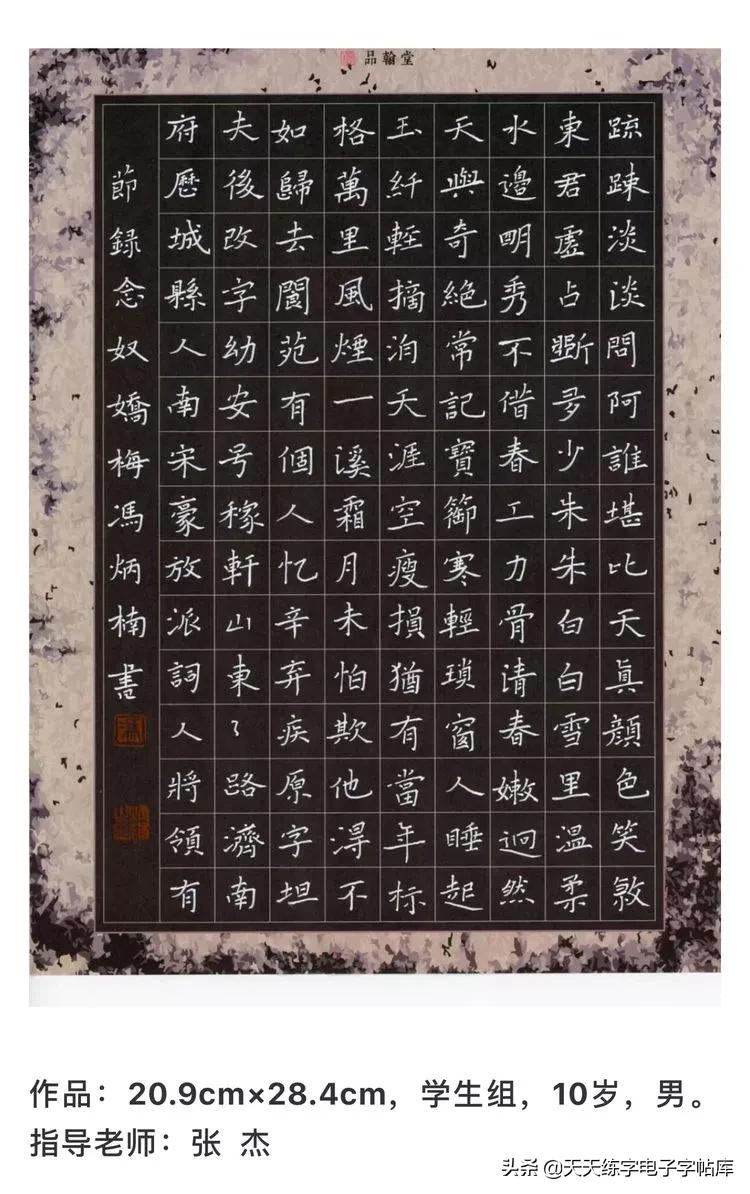 品翰堂
疏踈淡淡問阿誰堪比天眞顏色笑
東君虛占斷多少朱朱白白雪里溫柔
水邊明秀不借春工力骨清春嫩迥然
天與奇絕常記寶篽寒輕瑣窗人睡起
玉纤輕摘泊天涯空瘦損猶有當年标
格萬里風煙一溪霜月未怕欺他得不
如歸去閬苑有個人忆辛弃疾原字坦
夫後改字幼安号稼軒山東々路濟南
府歷城縣人南宋豪放派詞人將領有
節録念奴嬌梅馮炳楠書
作品：20.9cm×28.4cm，学生组，10岁，男。
指导老师：张 杰
头条 @天天练字电子字帖库